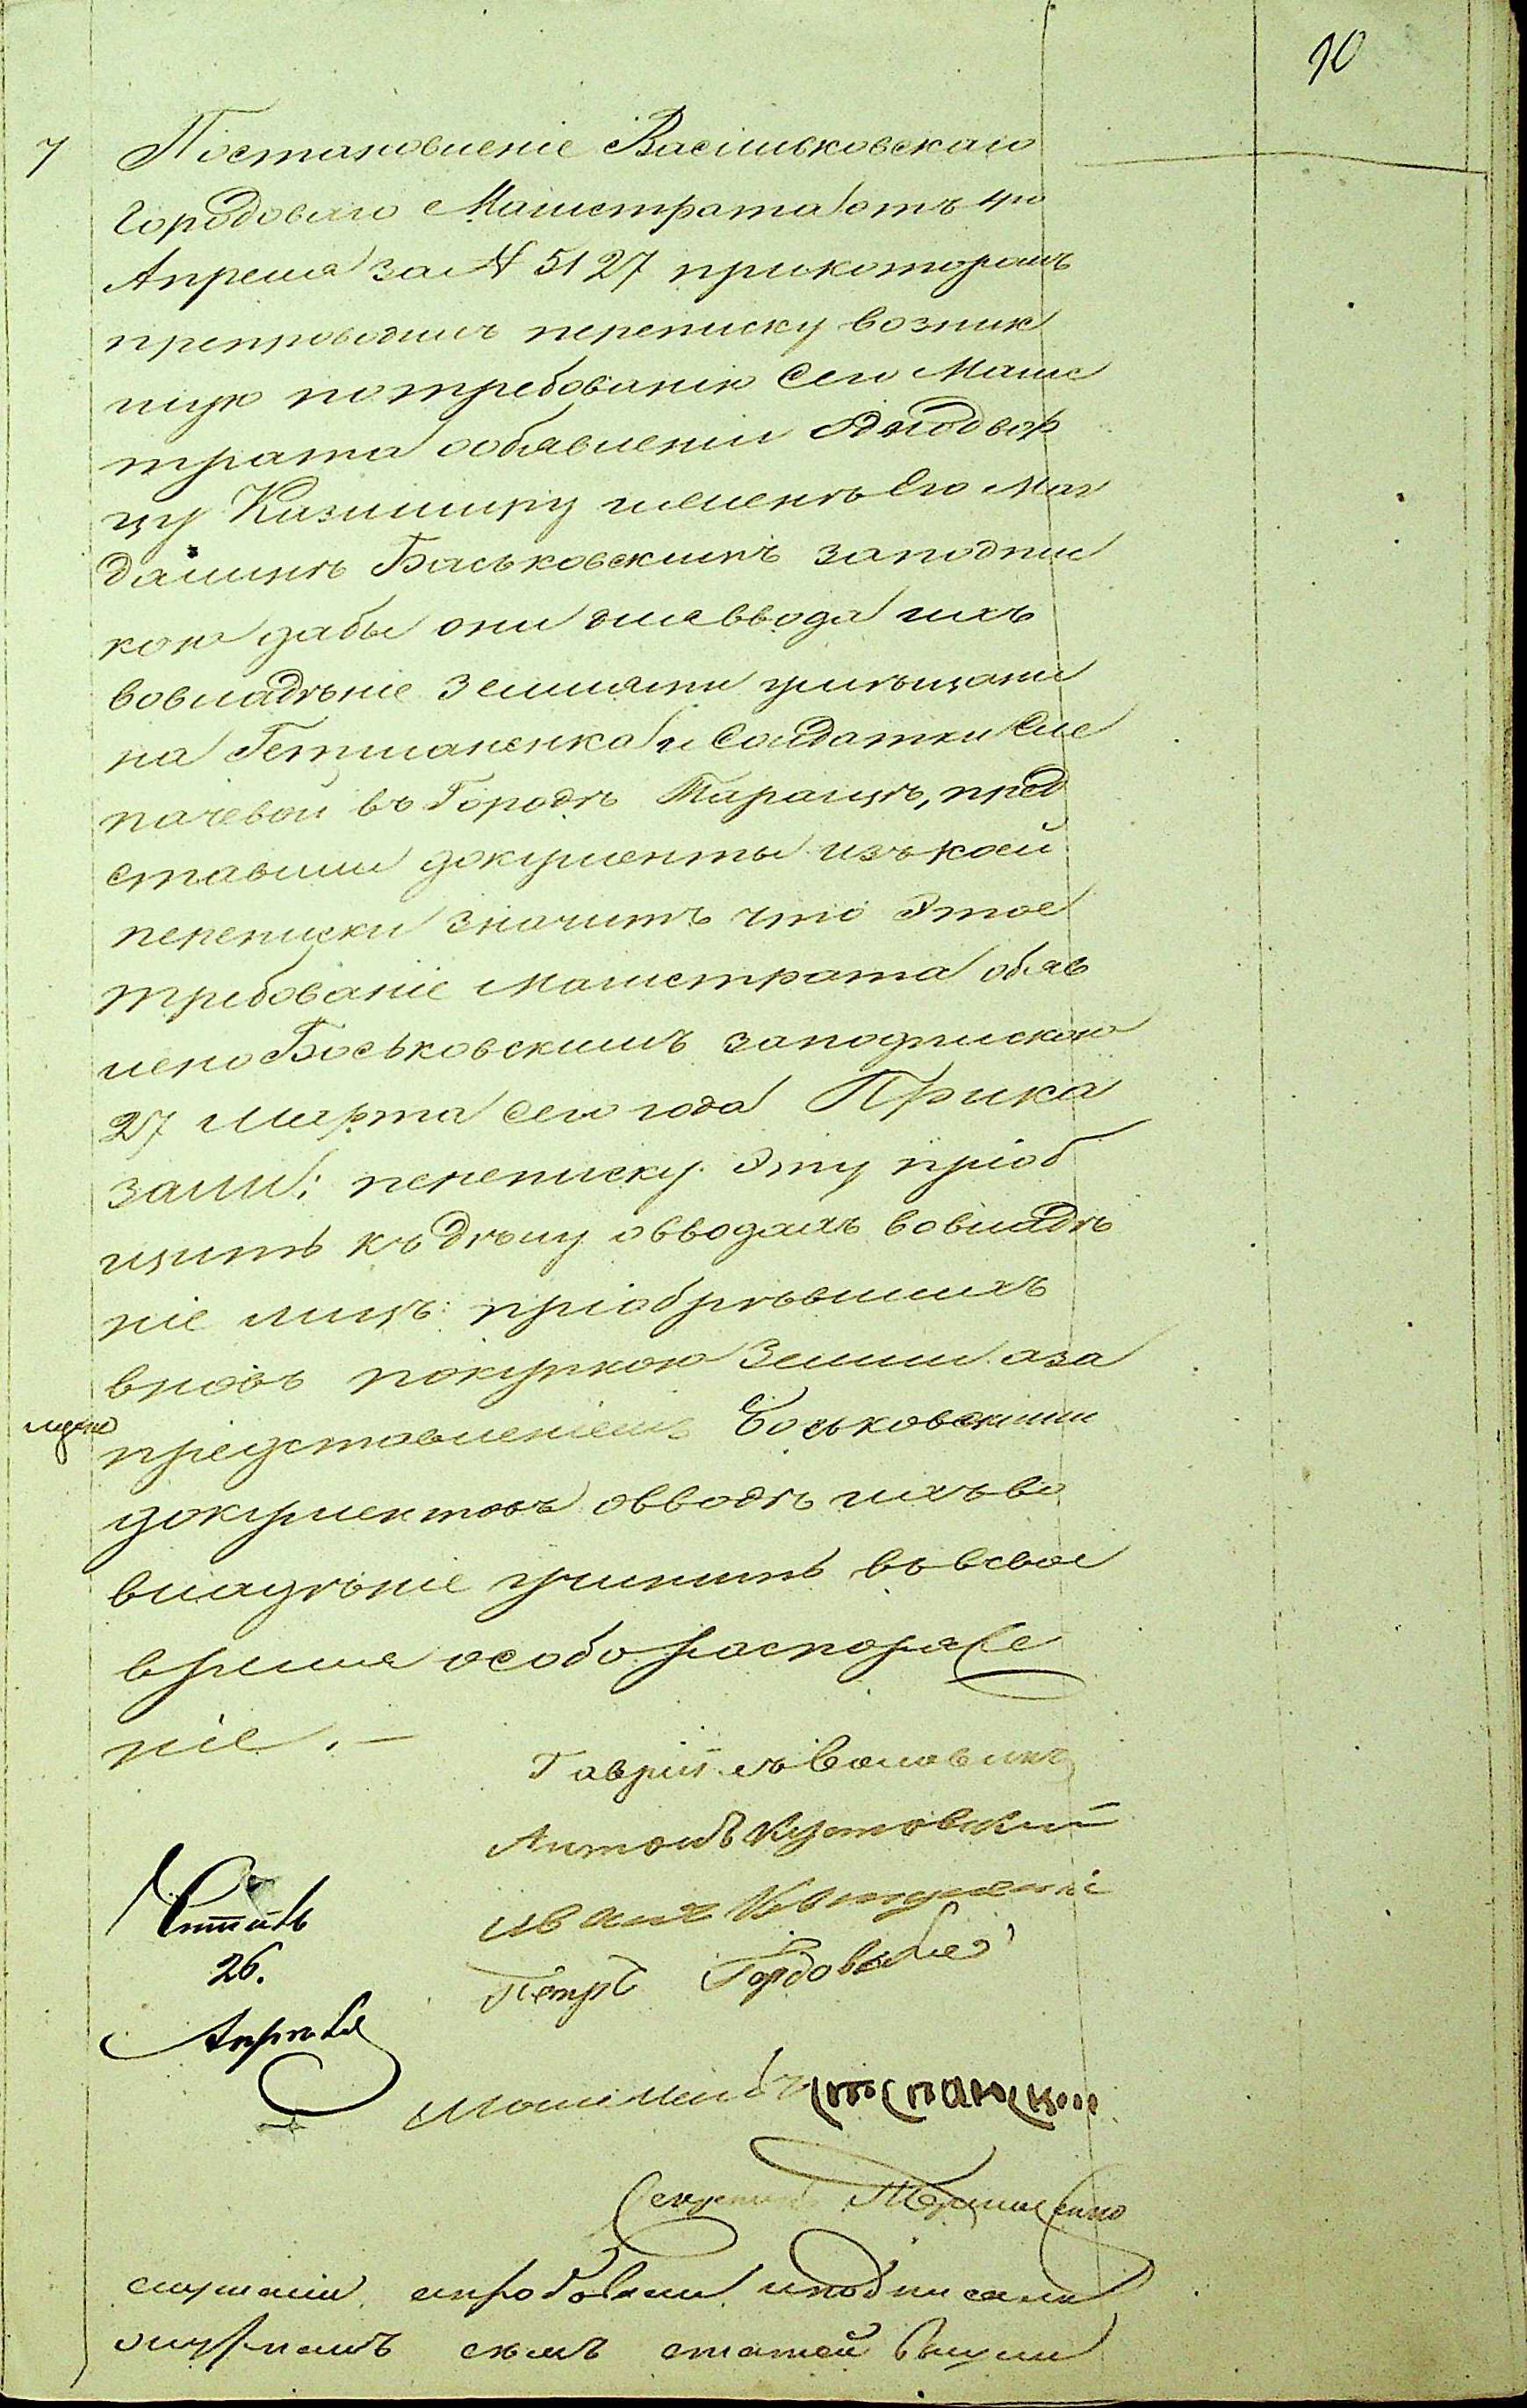 10
7 Постановленіе Васильковскаго
Городоваго Магистрата отъ 4го
Апреля за № 5127 прикоторомъ
препроводилъ переписку возник
шую потребованію Сего Магис
трата ообявленіи Однодвор
цу Казимиру именемъ Его Маг
Баськовскимъ заподпис
кою дабы они дляввода ихъ
вовладѣніе Землями
на Гетманенка и Солдатки Сле
пачевой въ Городѣ Таращѣ, пред
ставили документы изъ коей
переписки значитъ что Этое
требованіе Магистрата обяв
лено Боськовскимъ заподпискою
27 Марта сего года Прика
зали: переписку Эту пріоб
щить къ дѣлу овводахъ вовладѣ
ніе лицъ пріобрѣвшихъ
вновь покупкою Земли аза
представленіемъ Боськовскими
документовъ овводѣ ихъ во
владѣніе учинить въ свое
время особо распоряже
ніе. —
Гавріилъ Воловикъ
Антонъ Кустовскій
Иванъ
Петръ Гордовый
Читалъ
26.
Апреля
Секретарь
слушали апробовали иподписали
журналъ